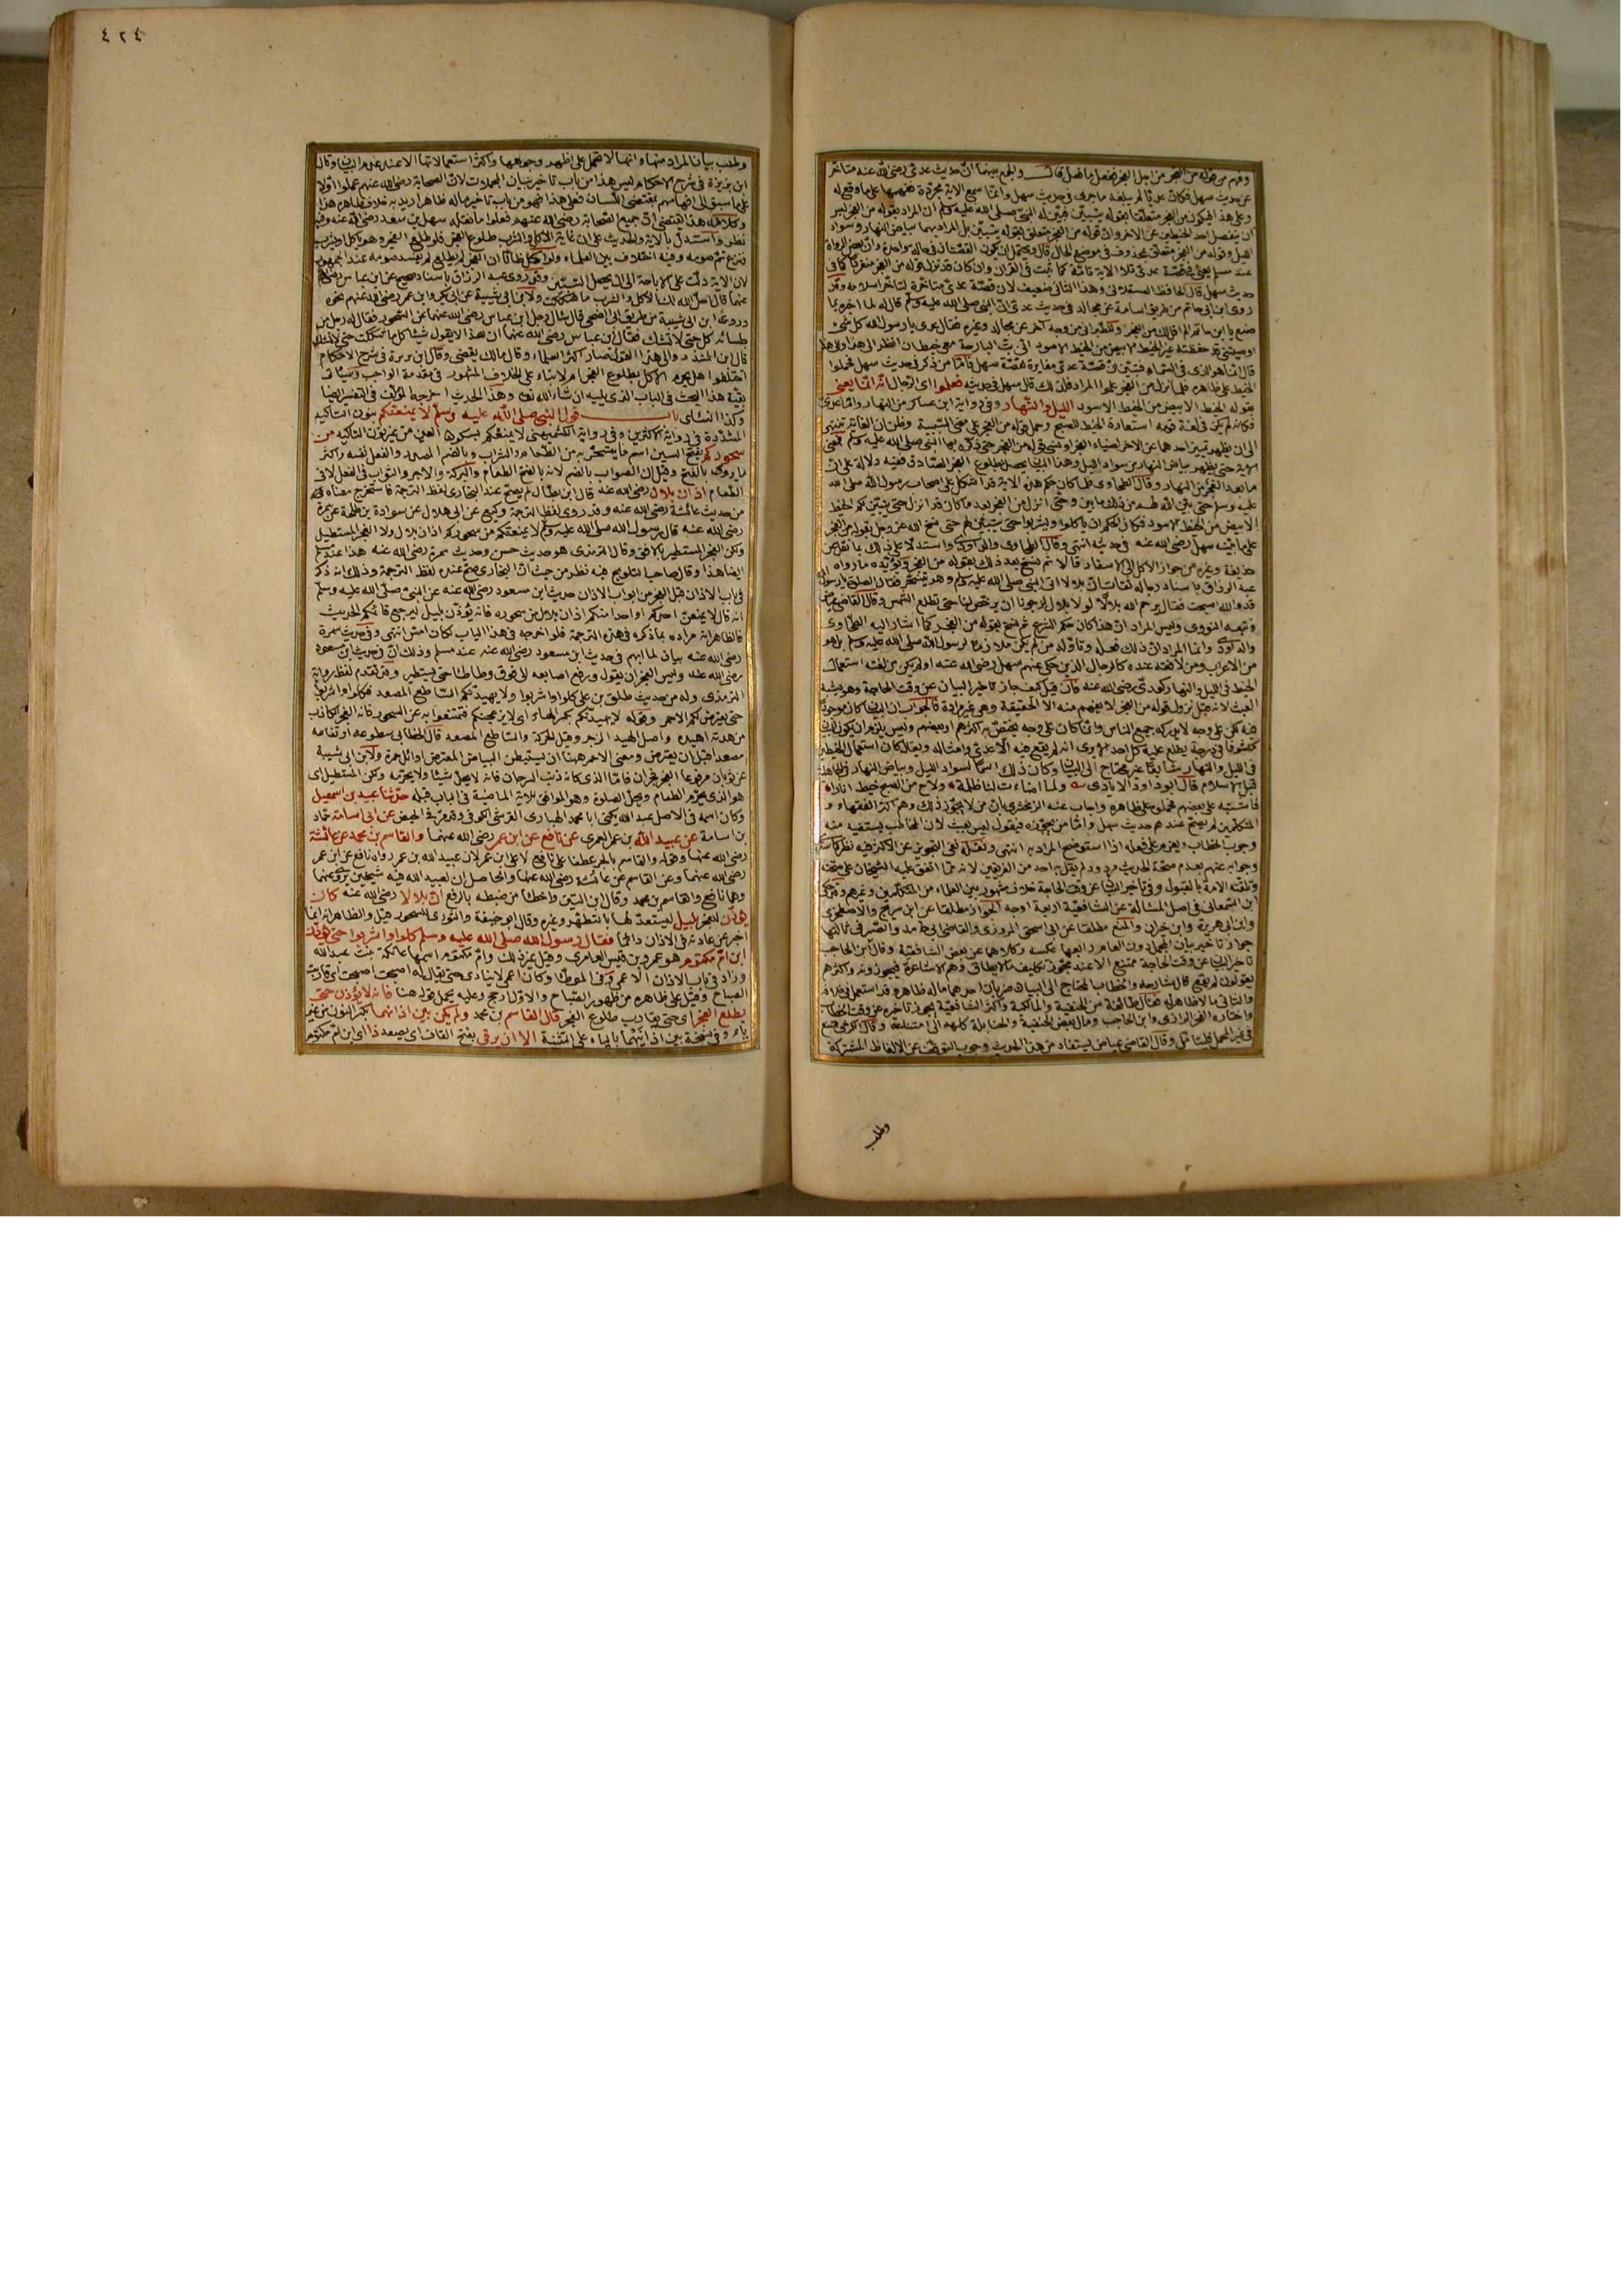 ٤٢٤
وفهم من قوله من الفجر من اجل الفجر ففعل ما فعل قال والجمع بينهما ان حديث عدى رضى الله عنه متأخر
عن حديث سهل فكان عديا لم يبلغه ما جرى فى حديث سهل وانما سمع الآية مجردة ففهمها على ما وقع له
عند مسلم يعنى فى قصة عدى تلا الآية تامة كما ثبت فى القرآن وان كان قد نزل قوله من الفجر منفردا كما فى
حديث سهل قال الحافظ العسقلانى وهذا الثانى ضعيف لان قصة عدى متأخرة لتأخر اسلامه وقد
روى ابن ابى حاتم من طريق اسامة عن مجالد فى حديث عدى ان النبى صلى الله عليه وسلم قال له لما اخبره بما
صنع يا ابن حاتم الم اقل لك من الفجر وللطبرانى من وجه آخر عن مجالد وغيره فقال عدى يا رسول الله كل شئ
اوصيتنى قد حفظته غير الخيط الابيض من الخيط الاسود انى بت البارحة معى خيطان انظر الى هذا والى هذا
قال انما هو الذى فى السماء فتبين ان قصة عدى مغايرة لقصة سهل فاما من ذكر فى حديث سهل فحملوا
الخيط على ظاهره فلما نزل من الفجر علموا المراد فلذلك قال سهل فى حديثه فعلموا اى الرجال انه انما يعنى
بقوله الخيط الابيض من الخيط الاسود الليل والنهار وفى رواية ابن عساكر من النهار واما عدى
فكانه لم يكن فى لغة قومه استعارة الخيط للصبح وحمل قوله من الفجر على معنى السببية وظن ان الغاية تنتهى
الى ان يظهر تمييز احدهما عن الآخر بضياء الفجر او نسى قوله من الفجر حتى ذكره بها النبى صلى الله عليه وسلم فمعنى
الآية حتى يظهر بياض النهار من سواد الليل وهذا البيان يحصل بطلوع الفجر الصادق ففيه دلالة على ان
ما بعد الفجر من النهار وقال الطحاوى فلما كان حكم هذه الآية قد اشكل على اصحاب رسول الله صلى الله
عليه وسلم حتى بين الله لهم من ذلك ما بين وحتى انزل من الفجر بعد ما كان قد انزل حتى يتبين لكم الخيط
الابيض من الخيط الاسود فكان الحكم ان ياكلوا ويشربوا حتى يتبين لهم حتى نسخ الله عز وجل بقوله من الفجر
على ما بينه سهل رضى الله عنه فى حديثه انتهى وقال الطحاوى والداودى واستدلا على ذلك بما نقل عن
حذيفة وغيره من جواز الاكل الى الاسفار قالا ثم نسخ بعد ذلك بقوله من الفجر ويؤيده ما رواه
عبد الرزاق باسناد رجاله ثقات ان بلالا اتى النبى صلى الله عليه وسلم وهو يتسحر فقال الصلاة يا رسول الله
قد والله اصبحت فقال يرحم الله بلالا لولا بلال لرجونا ان يرخص لنا حتى تطلع الشمس وقال القاضى عياض
وتبعه النووى وليس المراد ان هذا كان حكم الشرع ثم نسخ بقوله من الفجر كما اشار اليه الطحاوى
والداودى وانما المراد ان ذلك فعله وتأوله من لم يكن ملازما لرسول الله صلى الله عليه وسلم بل هو
من الاعراب ومن لا فقه عنده كالرجال الذين حكى عنهم سهل رضى الله عنه او لم يكن من لغته استعمال
الخيط فى الليل والنهار كعدى رضى الله عنه فان قيل كيف جاز تاخير البيان عن وقت الحاجة وهو يشبه
العبث لانه قبل نزول قوله من الفجر لا يفهم منه الا الحقيقة وهى غير مرادة فالجواب ان البيان كان موجودا
فيه لكن على وجه لا يدركه جميع الناس وانما كان على وجه يختص به اكثرهم او بعضهم وليس يلزم ان يكون البيان
مكشوفا فى درجة يطلع عليه كل احد الا ترى انه لم يقع فيه الا عدى وامثاله ويقال كان استعمال الخيطين
فى الليل والنهار شائعا غير محتاج الى البيان وكان ذلك اسما لسواد الليل وبياض النهار فى الجاهلية
قبل الاسلام قال ابو داود الايادى ولما اضاءت لنا ظلمة ولاح من الصبح خيط انارا
فاشتبه على بعضهم فحملوه على ظاهره واجاب عنه الزمخشرى بان من لا يجوز ذلك وهم اكثر الفقهاء و
المتكلمين لم يصح عندهم حديث سهل واما من يجوزه فيقول ليس بعبث لان المخاطب يستفيد منه
وجوب الخطاب ويعزم على فعله اذا استوضح المراد به انتهى ونقله نفى التجويز عن الاكثر فيه نظر
وجوابه عنهم بعدم صحة الحديث مردود لم يقل به احد من الفريقين لانه مما اتفق عليه الشيخان على صحته
وتلقته الامة بالقبول وفى تأخير البيان عن وقت الحاجة خلاف مشهور بين العلماء من المتكلمين وغيرهم وقد حكى
ابن السمعانى فى اصل المسألة عن الشافعية اربعة اوجه الجواز مطلقا عن ابن سريج والاصطخرى
وابن ابى هريرة وابن خيران والمنع مطلقا عن ابى اسحق المروزى والقاضى ابى حامد والصيرفى ثالثها
جواز تأخير بيان المجمل دون العام رابعها عكسه وكلاهما عن بعض الشافعية وقال ابن الحاجب
تأخير البيان عن وقت الحاجة ممتنع الا عند مجوز تكليف ما لا يطاق وهم الاشاعرة فيجوزونه واكثرهم
يقولون لم يقع قال شارحه والخطاب المحتاج الى البيان ضربان احدهما ما له ظاهر وقد استعمل فى خلافه
والثانى ما لا ظاهر له فقال طائفة من الحنفية والمالكية واكثر الشافعية يجوز تأخيره عن وقت الخطاب
واختاره الفخر الرازى وابن الحاجب ومال بعض الحنفية والحنابلة كلهم الى امتناعه وقال الكرخى يمتنع
فى غير المجمل فليتأمل وقال القاضى عياض يستفاد من هذا الحديث وجوب التوقف عن الالفاظ المشتركة
وطلب
وطلب بيان المراد منها وانها لا تحمل على اظهر وجوهها واكثر استعمالاتها الا عند عدم البيان وقال
ابن بزيزة فى شرح الاحكام ليس هذا من باب تأخير بيان المجملات لان الصحابة رضى الله عنهم عملوا اولا
على ما سبق الى افهامهم بمقتضى اللسان فعلى هذا فهو من باب تأخير ما له ظاهر اريد به خلاف ظاهره هذا
وكلامه هذا يقتضى ان جميع الصحابة رضى الله عنهم فعلوا ما نقله سهل بن سعد رضى الله عنه وفيه
نظر واستدل بالآية والحديث على ان غاية الاكل والشرب طلوع الفجر فلو طلع الفجر وهو ياكل او يشرب
فنزع تم صومه وفيه اختلاف بين العلماء ولو اكل ظانا ان الفجر لم يطلع لم يفسد صومه عند الجمهور
لان الآية دلت على الاباحة الى ان يحصل التبيين وقد روى عبد الرزاق باسناد صحيح عن ابن عباس رضى الله
عنهما قال احل الله لك الاكل والشرب ما شككت ولابن ابى شيبة عن ابى بكر وابن عمر رضى الله عنهم نحوه
وروى ابن ابى شيبة من طريق ابى الضحى قال سأل رجل ابن عباس رضى الله عنهما عن السحور فقال له رجل من
جلسائه كل حتى لا تشك فقال ابن عباس رضى الله عنهما ان هذا لا يقول شيئا كل ما شككت حتى لا تشك
قال ابن المنذر والى هذا القول صار اكثر العلماء وقال مالك يقضى وقال ابن بزيزة فى شرح الاحكام
اختلفوا هل يحرم الاكل بطلوع الفجر ام لا بناء على الخلاف المشهور فى مقدمة الواجب وسيأتى
بقية هذا البحث فى الباب الذى يليه ان شاء الله تعالى وهذا الحديث اخرجه المؤلف فى التفسير ايضا
وكذا النسائى باب قول النبى صلى الله عليه وسلم لا يمنعنكم بنون التأكيد
المشددة فى رواية الاكثرين وفى رواية الكشميهنى لا يمنعكم بسكون العين من غير نون التأكيد من
سحوركم بفتح السين اسم ما يتسحر به من الطعام والشراب وبالضم المصدر والفعل نفسه واكثر
ما يروى بالفتح وقيل ان الصواب بالضم لانه بالفتح الطعام والبركة والاجر والثواب فى الفعل لا فى
الطعام اذان بلال رضى الله عنه قال ابن بطال لم يصح عند البخارى لفظ الترجمة فاستخرج معناه
من حديث عائشة رضى الله عنه وقد روى لفظ الترجمة وكيع عن ابى هلال عن سوادة بن حنظلة عن سمرة
رضى الله عنه قال رسول الله صلى الله عليه وسلم لا يمنعنكم من سحوركم اذان بلال ولا الفجر المستطيل
ولكن الفجر المستطير بالافق وقال الترمذى هو حديث حسن وحديث سمرة رضى الله عنه هذا عند مسلم
ايضا هذا وقال صاحب التلويح فيه نظر من حيث ان البخارى صح عنده لفظ الترجمة وذلك انه ذكر
فى باب الاذان قبل الفجر من ابواب الاذان حديث ابن مسعود رضى الله عنه عن النبى صلى الله عليه وسلم
انه قال لا يمنعن احدكم او احدا منكم اذان بلال من سحوره فانه يؤذن بليل ليرجع قائمكم الحديث
فالظاهر انه مراده بما ذكره فى هذه الترجمة فلو اخرجه فى هذا الباب لكان امس انتهى وفى حديث سمرة
رضى الله عنه بيان لما ابهم فى حديث ابن مسعود رضى الله عنه عند مسلم وذلك ان فى حديث ابن مسعود
رضى الله عنه وليس الفجر ان يقول ورفع اصابعه الى فوق وطأطأ حتى يستطير وقد تقدم لفظ رواية
الترمذى وله من حديث طلق بن على كلوا واشربوا ولا يهيدنكم الساطع المصعد فكلوا واشربوا
حتى يعترض لكم الاحمر وقوله لا يهيدنكم بكسر الهاء اى لا يزعجنكم فتمتنعوا به عن السحور فانه الفجر الكاذب
من هدته اهيده واصل الهيد الزجر وقيل الحركة والساطع المصعد قال الخطابى سطوعه ارتفاعه
مصعدا قبل ان يعترض ومعنى الاحمر ههنا ان يستبطن البياض المعترض اوائل حمرة ولابن ابى شيبة
عن ثوبان مرفوعا الفجر فجران فاما الذى كانه ذنب السرحان فانه لا يحل شيئا ولا يحرمه ولكن المستطير اى
هو الذى يحرم الطعام ويحل الصلوة وهو الموافق للآية الماضية فى الباب قبله حدثنا عبيد بن اسمعيل
وكان اسمه فى الاصل عبد الله يكنى ابا محمد الهبارى القرشى الكوفى وقد مر فى الحيض عن ابى اسامة حماد
بن اسامة عن عبيد الله بن عمر العمرى عن نافع عن ابن عمر رضى الله عنهما والقاسم بن محمد عن عائشة
رضى الله عنها وقوله والقاسم بالجر عطفا على نافع لا على ابن عمر لان عبيد الله بن عمر رواه نافع عن ابن عمر
رضى الله عنهما وعن القاسم عن عائشة رضى الله عنها والحاصل ان لعبيد الله فيه شيخين يروى عنهما
وهما نافع والقاسم بن محمد وقال ابن التين واخطأ من ضبطه بالرفع ان بلالا رضى الله عنه كان
يؤذن للفجر بليل ليستعد لها بالتطهر وغيره وقال ابو حنيفة والثورى للسحور قيل والظاهر انه انما
اخبر عن عادته فى الاذان دائما فقال رسول الله صلى الله عليه وسلم كلوا واشربوا حتى يؤذن
ابن ام مكتوم هو عمرو بن قيس العامرى وقيل غير ذلك وام مكتوم اسمها عاتكة بنت عبد الله
وزاد فى باب الاذان الاعمى وفى الموطأ وكان اعمى لا ينادى حتى يقال له اصبحت اصبحت اى قاربت
الصباح وقيل على ظاهره من ظهور الصباح والاول ارجح وعليه يحمل قوله هنا فانه لا يؤذن حتى
يطلع الفجر اى حتى يقارب طلوع الفجر قال القاسم بن محمد ولم يكن بين اذانهما بكسر النون من غير
ياء وفى نسخة بين اذانيهما بالياء على التثنية الا ان يرقى بفتح القاف اى يصعد ذا اى ابن ام مكتوم